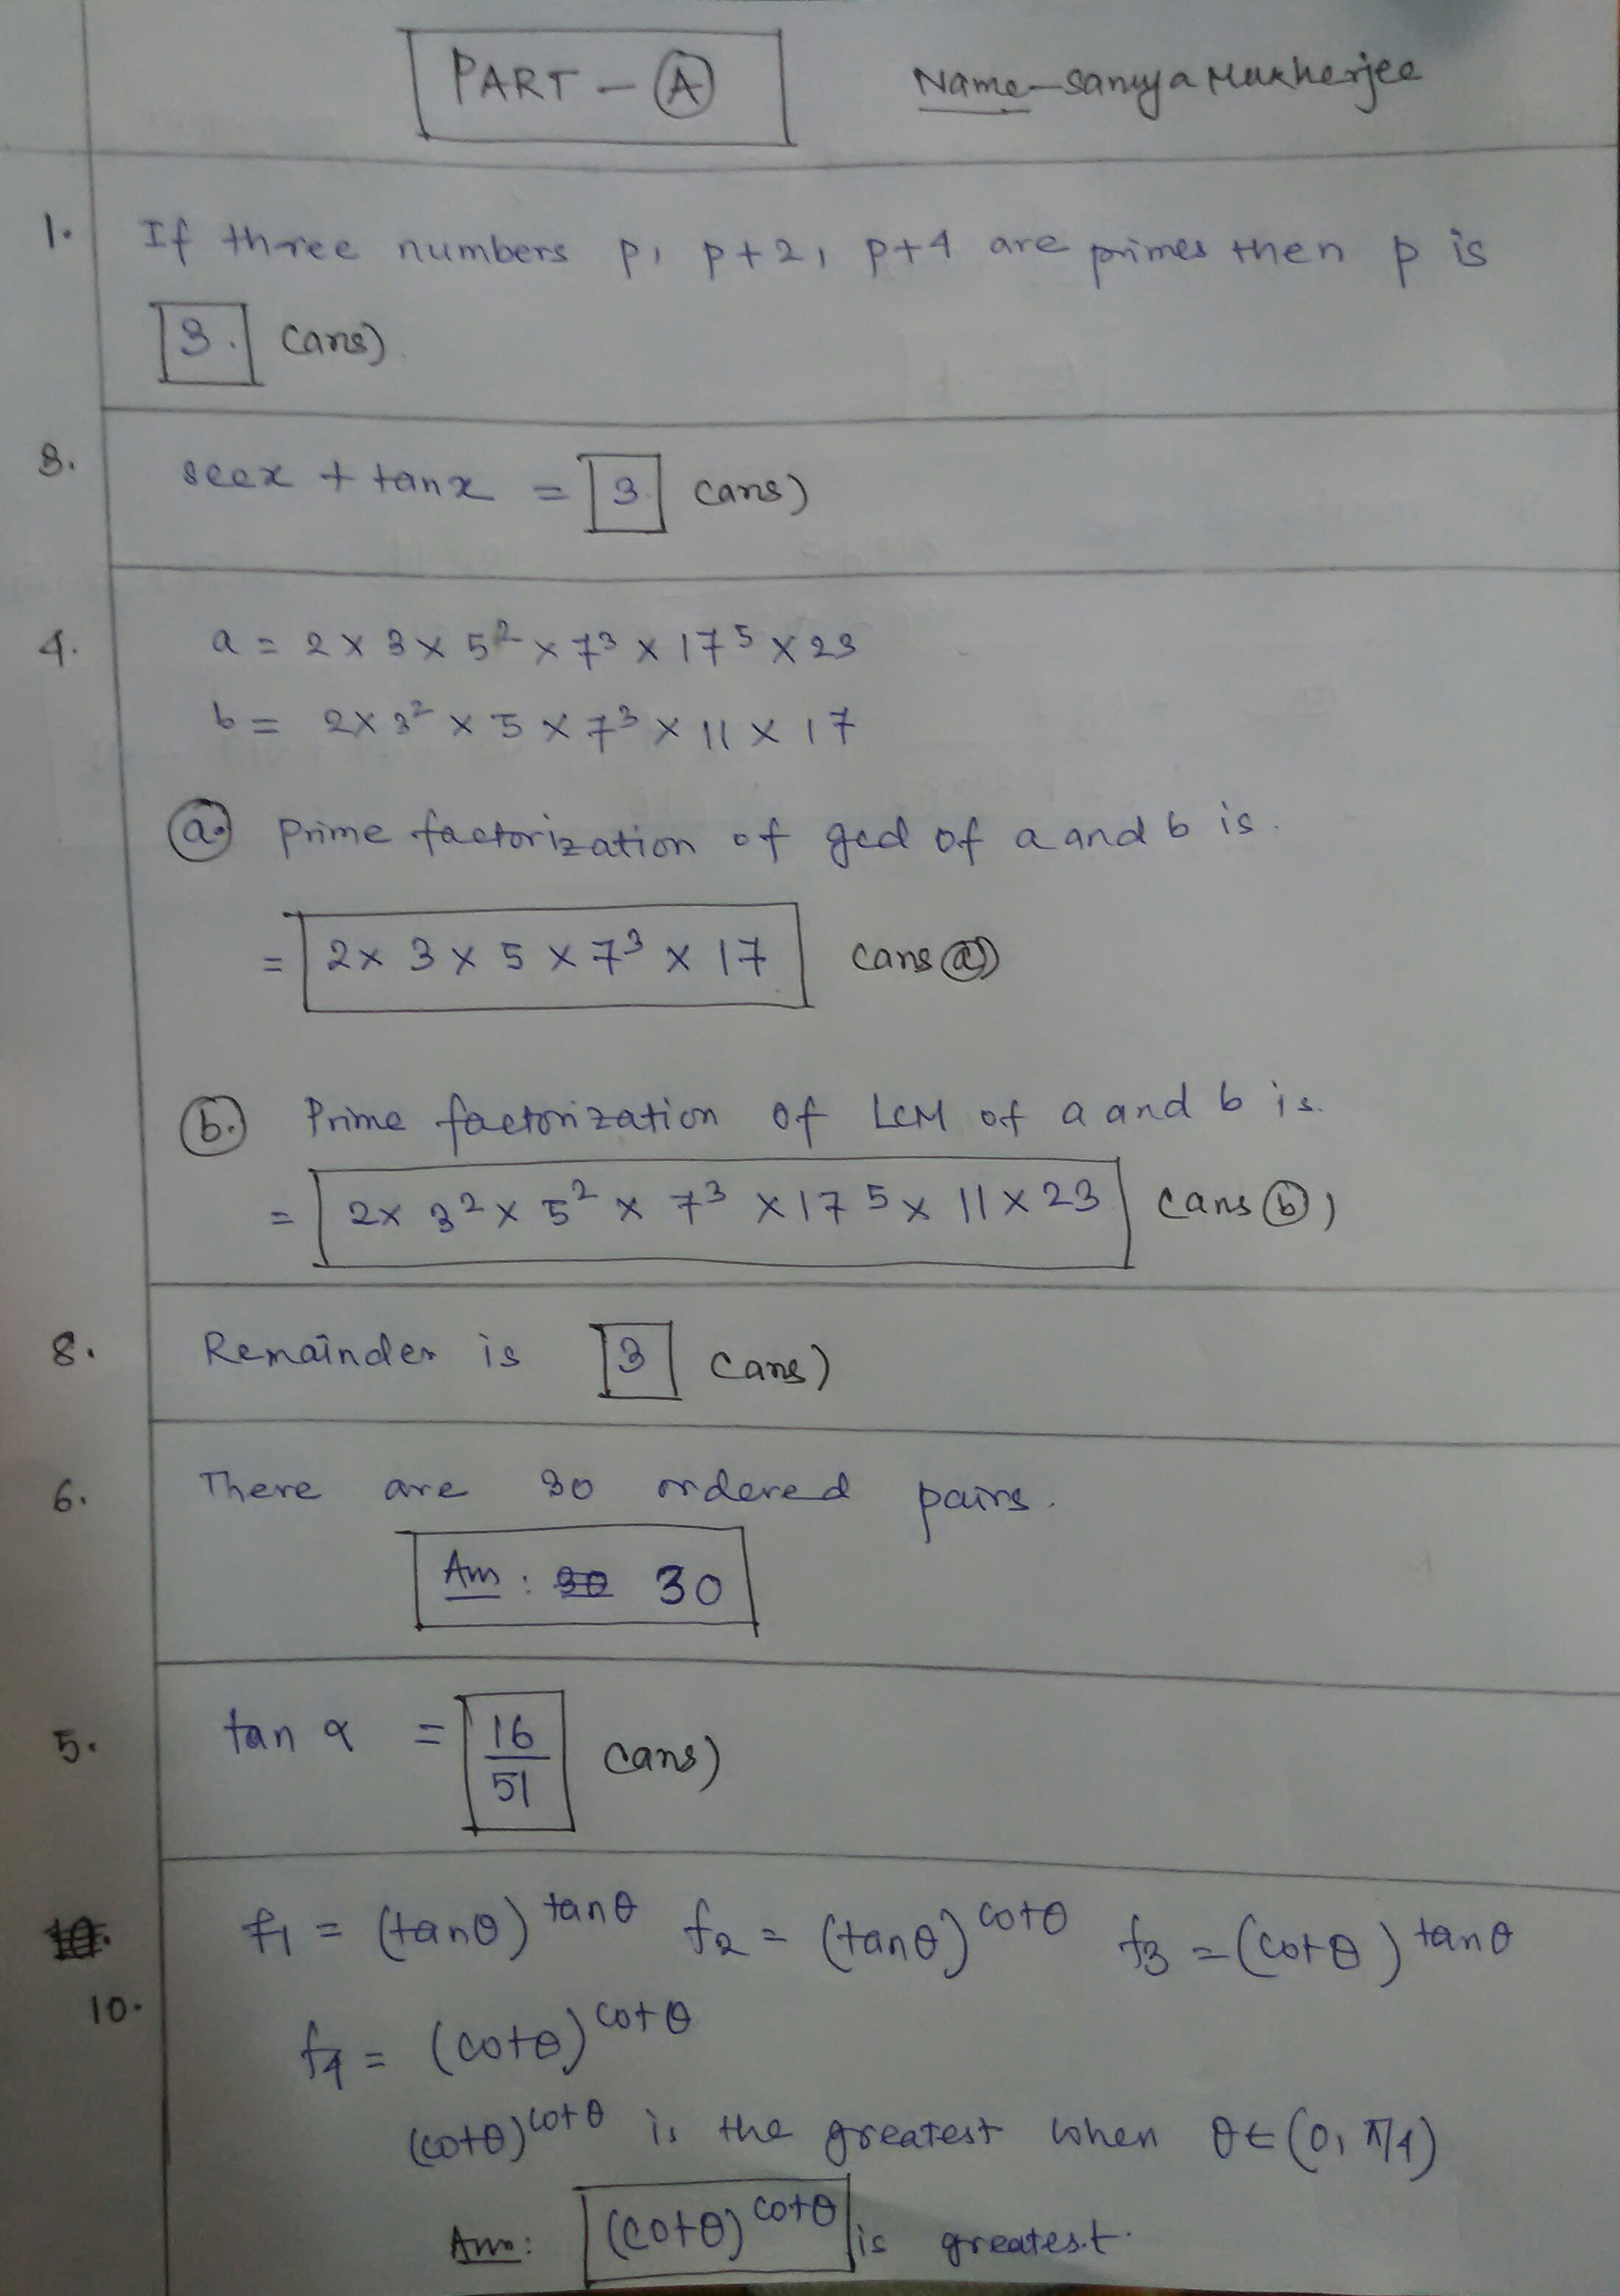 PART - A
Name - Sanya Mukherjee
1. If three numbers p, p+2, p+4 are primes then p is
3. (ans)
3. secx + tanx = 3. (ans)
4. a = 2 × 3 × 5² × 7³ × 17⁵ × 23
b = 2 × 3² × 5 × 7³ × 11 × 17
a. Prime factorization of gcd of a and b is.
= 2 × 3 × 5 × 7³ × 17 (ans a)
b. Prime factorization of LCM of a and b is.
= 2 × 3² × 5² × 7³ × 17⁵ × 11 × 23 (ans b)
8. Remainder is 3 (ans)
6. There are 30 ordered pairs.
Ans : 30 30
5. tan α = 16/51 (ans)
10. f₁ = (tanθ)^tanθ f₂ = (tanθ)^cotθ f₃ = (cotθ)^tanθ
10. f₄ = (cotθ)^cotθ
(cotθ)^cotθ is the greatest when θ ∈ (0, π/4)
Ans: (cotθ)^cotθ is greatest.